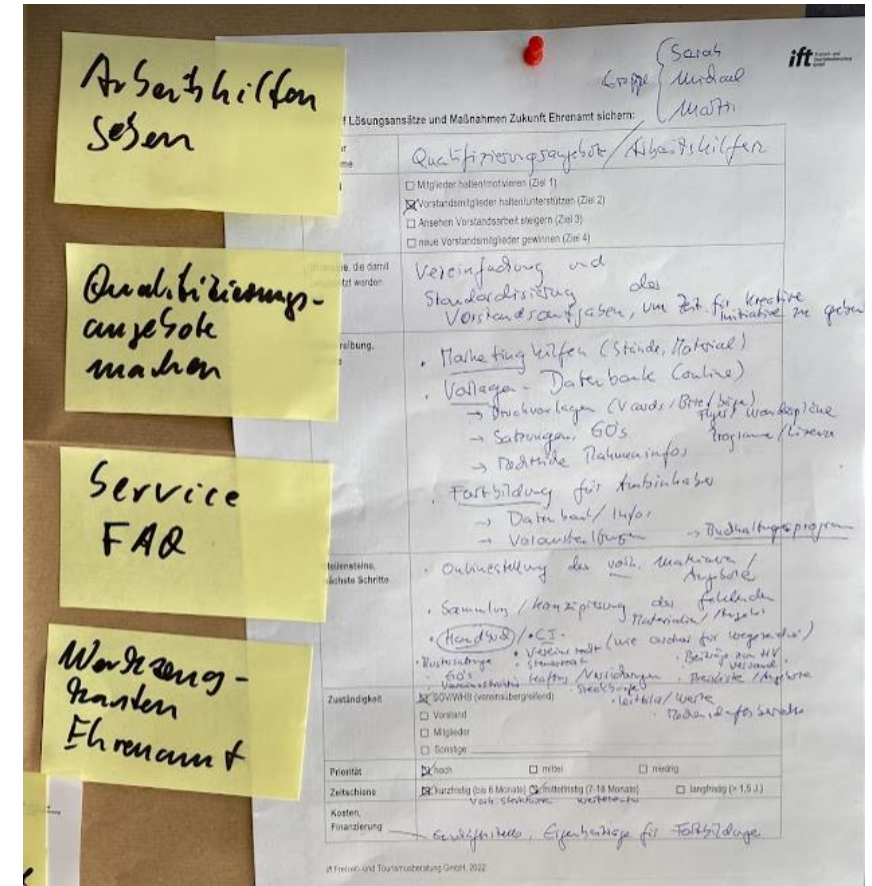 Arbeitshilfen
geben
Qualifizierungs-
angebote
machen
Service
FAQ
Werkzeug-
kasten
Ehrenamt
Gruppe
Sarah
Michael
Martin
ift Freizeit- und Tourismusberatung GmbH
f Lösungsansätze und Maßnahmen Zukunft Ehrenamt sichern:
Qualifizierungsangebote / Arbeitshilfen
Mitglieder halten/motivieren (Ziel 1)
Vorstandsmitglieder halten/unterstützen (Ziel 2)
Ansehen Vorstandsarbeit steigern (Ziel 3)
neue Vorstandsmitglieder gewinnen (Ziel 4)
, die damit
werden
Vereinfachung und
Standardisierung der
Vorstandsaufgaben, um Zeit für kreative
Initiative zu geben
reibung,
• Marketinghilfen (Stände, Material)
• Vorlagen - Datenbank (online)
→ Druckvorlagen (Vcards / Briefbögen)
Flyer / Wanderpläne
→ Satzungen, GO's
Programme / Lizenz
→ rechtliche Rahmeninfos
• Fortbildung für Amtsinhaber
→ Datenbank / Infos
→ Veranstaltungen → Buchhaltungsprogramm
Meilensteine,
nächste Schritte
• Onlinestellung der vorh. Materialien /
Angebote
• Sammlung / Konzipierung der fehlenden
Materialien / Angebote
• Handbuch / • CI
• GO's
• Leitbild / Werte
Zuständigkeit
SGV/WHB (vereinsübergreifend)
Vorstand
Mitglieder
Sonstige
Priorität
hoch
mittel
niedrig
Zeitschiene
kurzfristig (bis 6 Monate)
mittelfristig (7-18 Monate)
langfristig (> 1,5 J.)
Kosten,
Finanzierung
Geschäftsstelle, Eigenbeiträge für Fortbildungen
ift Freizeit- und Tourismusberatung GmbH, 2022